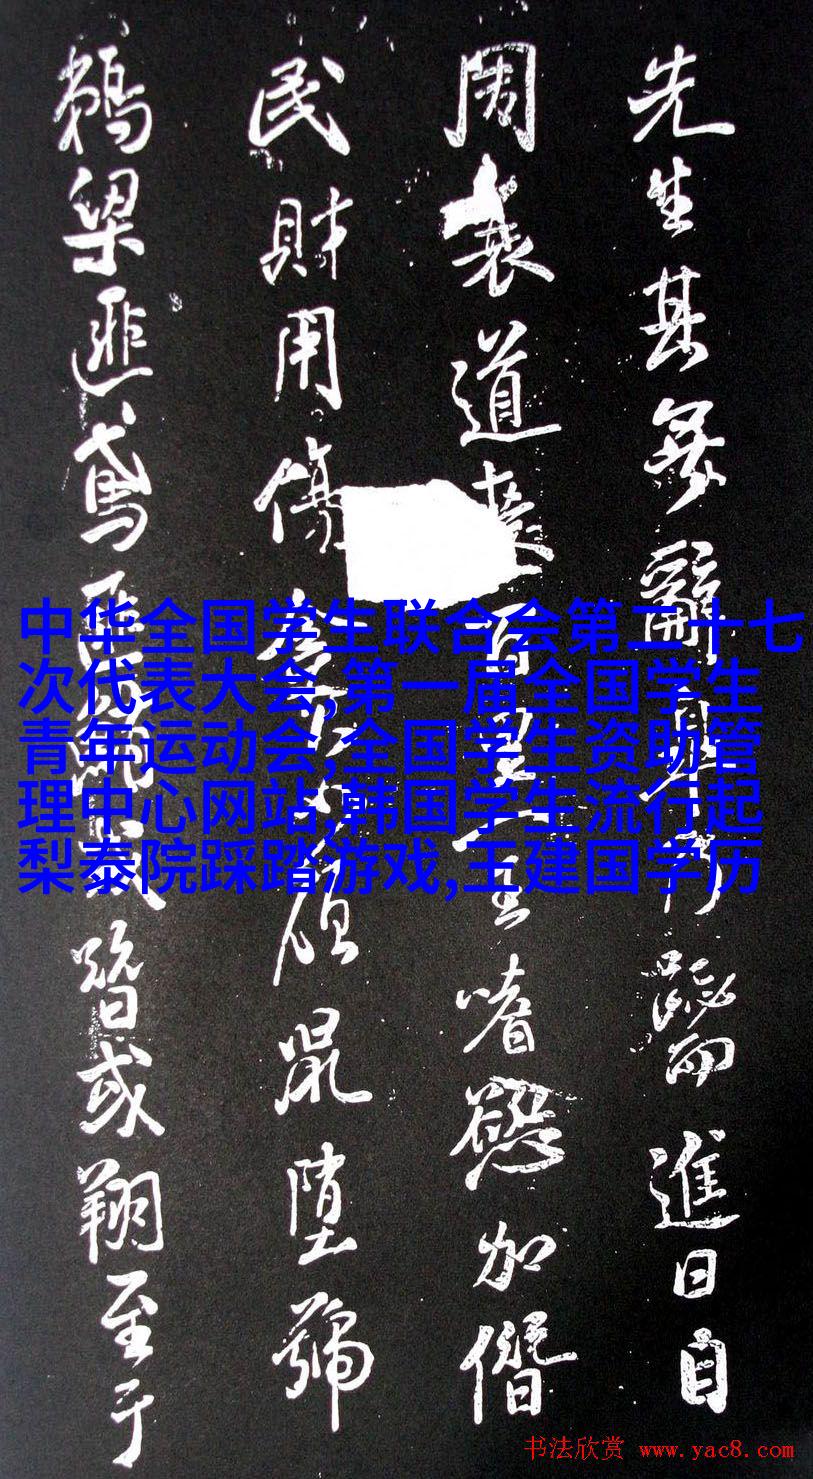 先生其無辭進曰自
周衰道喪百嗜慾加僭
民財用傷堕號
鵜梁匪鳶匪或翔至于
中华全国学生联合会第二十七
次代表大会,第一届全国学生
青年运动会,全国学生资助管
理中心网站,韩国学生流行起
梨泰院踩踏游戏,王建国学历
书法欣赏 www.yac8.com